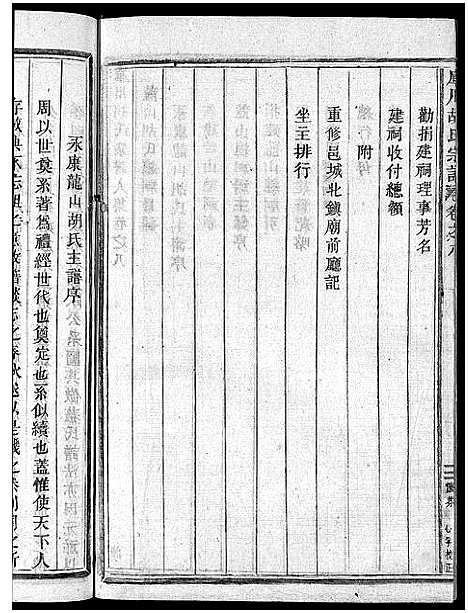 胡氏宗譜卷之八
勸捐建祠理事芳名
建祠收付總額
附
重修邑城北鎮廟前廳記
坐主排行
永康龍山胡氏主譜序
周以世奠系著爲禮經世代也奠定也系似續也蓋惟使天下人